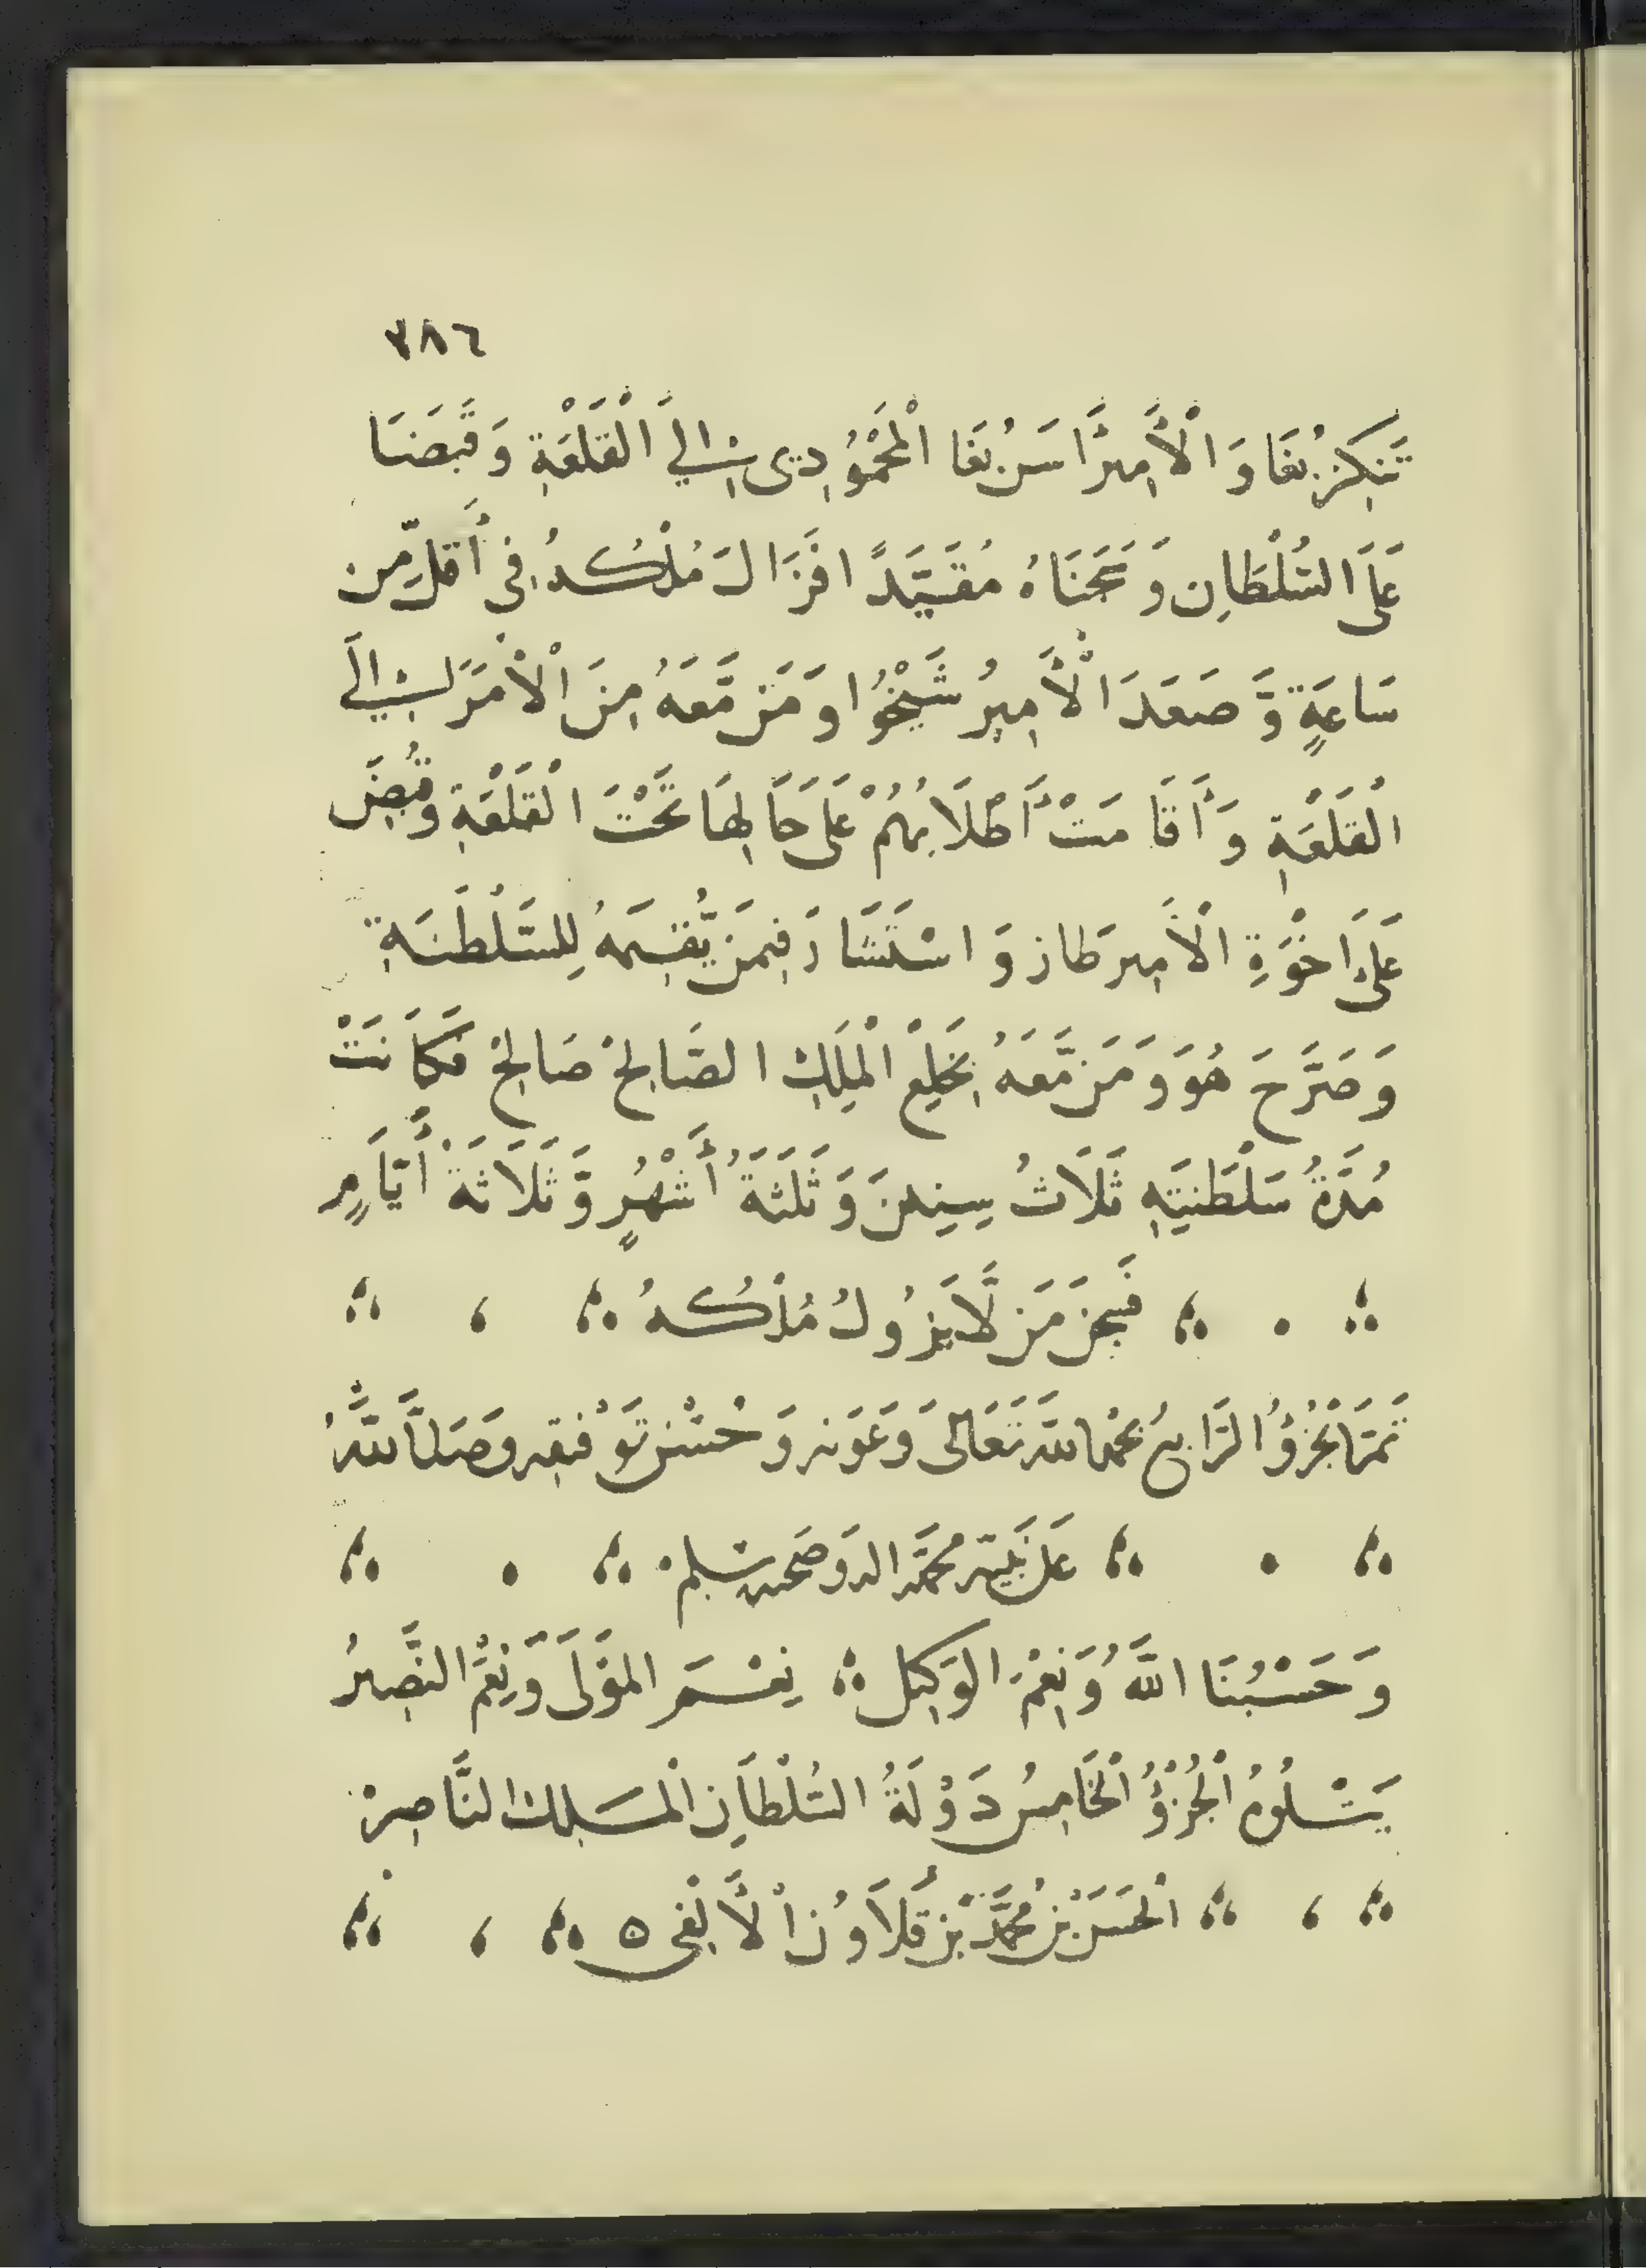 ٣٨٦
تَنْكِزْبُغَا وَ الْأَمِيْرُ اَسَنْبُغَا الْمَحْمُوُدِى اِلَى الْقَلْعَةِ وَ قَبَضَا
عَلَى السُّلْطَانِ وَ سَجَنَاهُ مُقَيَّدًا فَزَالَ مُلْكُهُ فِى أَقَلَّ مِّن
سَاعَةٍ وَّ صَعَدَ الْأَمِيرُ شَيْخُوا وَ مَنْ مَّعَهُ مِنَ الْأُمَرَاءِ اِلَى
الْقَلْعَةِ وَ أَقَامَتْ أَطْلَابُهُمْ عَلَى حَالِهَا تَحْتَ الْقَلْعَةِ وَقُبِضَ
عَلَى اخْوَةِ الْأَمِير طَاز وَ اسْتَشَارَ فِيمَنْ يُّقِيمَهُ لِلسَّلْطَنَةِ
وَ صَرَّحَ هُوَ وَ مَنْ مَّعَهُ بِخَلْعِ الْمَلِكِ الصَّالِحْ صَالِحْ فَكَانَتْ
مُدَّةُ سَلْطَنَتِهِ ثَلَاثُ سِنِينَ وَ ثَلَثَةَ أَشْهُرٍ وَّ ثَلَاثَةَ أَيَّامٍ
فَسُبحٰنَ مَنْ لَّا يَزُولُ مُلْكُهُ
تَمَّ الْجُزْؤُ الرَّابِعُ بِحَمْدِ اللهِ تَعَالَى وَ عَوْنِه وَ حُسْنِ تَوْفِيقِه وَصَلَّى اللّٰهُ
عَلَى نَبِيِّه مُحَمَّد وَ اله وَ صَحبِه وسَلم
وَ حَسْبُنَا اللّٰهُ وَ نِعْمَ الْوَكِيل نِعْمَ الْمَوْلَى وَ نِعْمَ النَّصِيرُ
يَتْلُوهُ الْجُزْؤُ الْخَامِسُ دَوْلَةُ السُّلْطَانِ الْمَلِك النَّاصِرْ
الْحَسَنْ بْنِ مُحَمَّد بْنِ قَلَاوُنْ الْأَلْفِى ٥